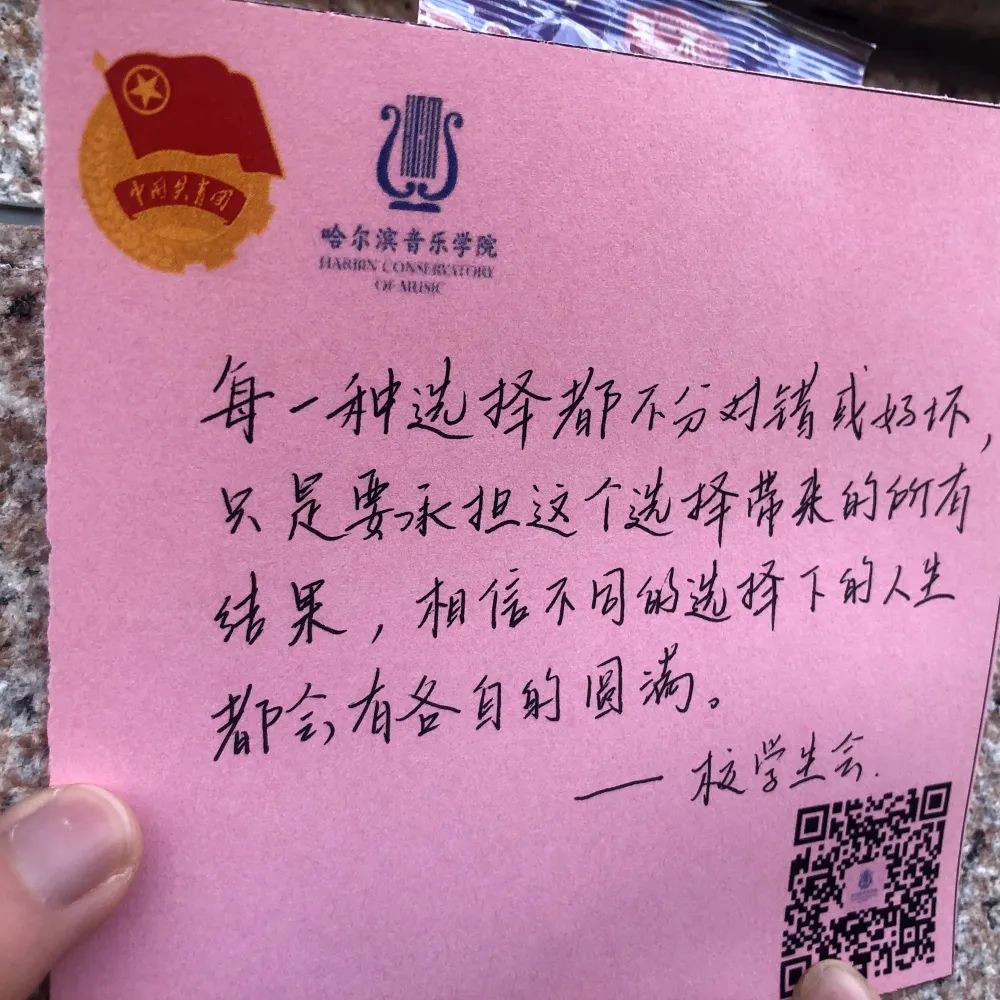 中国共青团
哈尔滨音乐学院
HARBIN CONSERVATORY
OF MUSIC
每一种选择都不分对错或好坏，
只是要承担这个选择带来的所有
结果，相信不同的选择下的人生
都会有各自的圆满。
——校学生会.